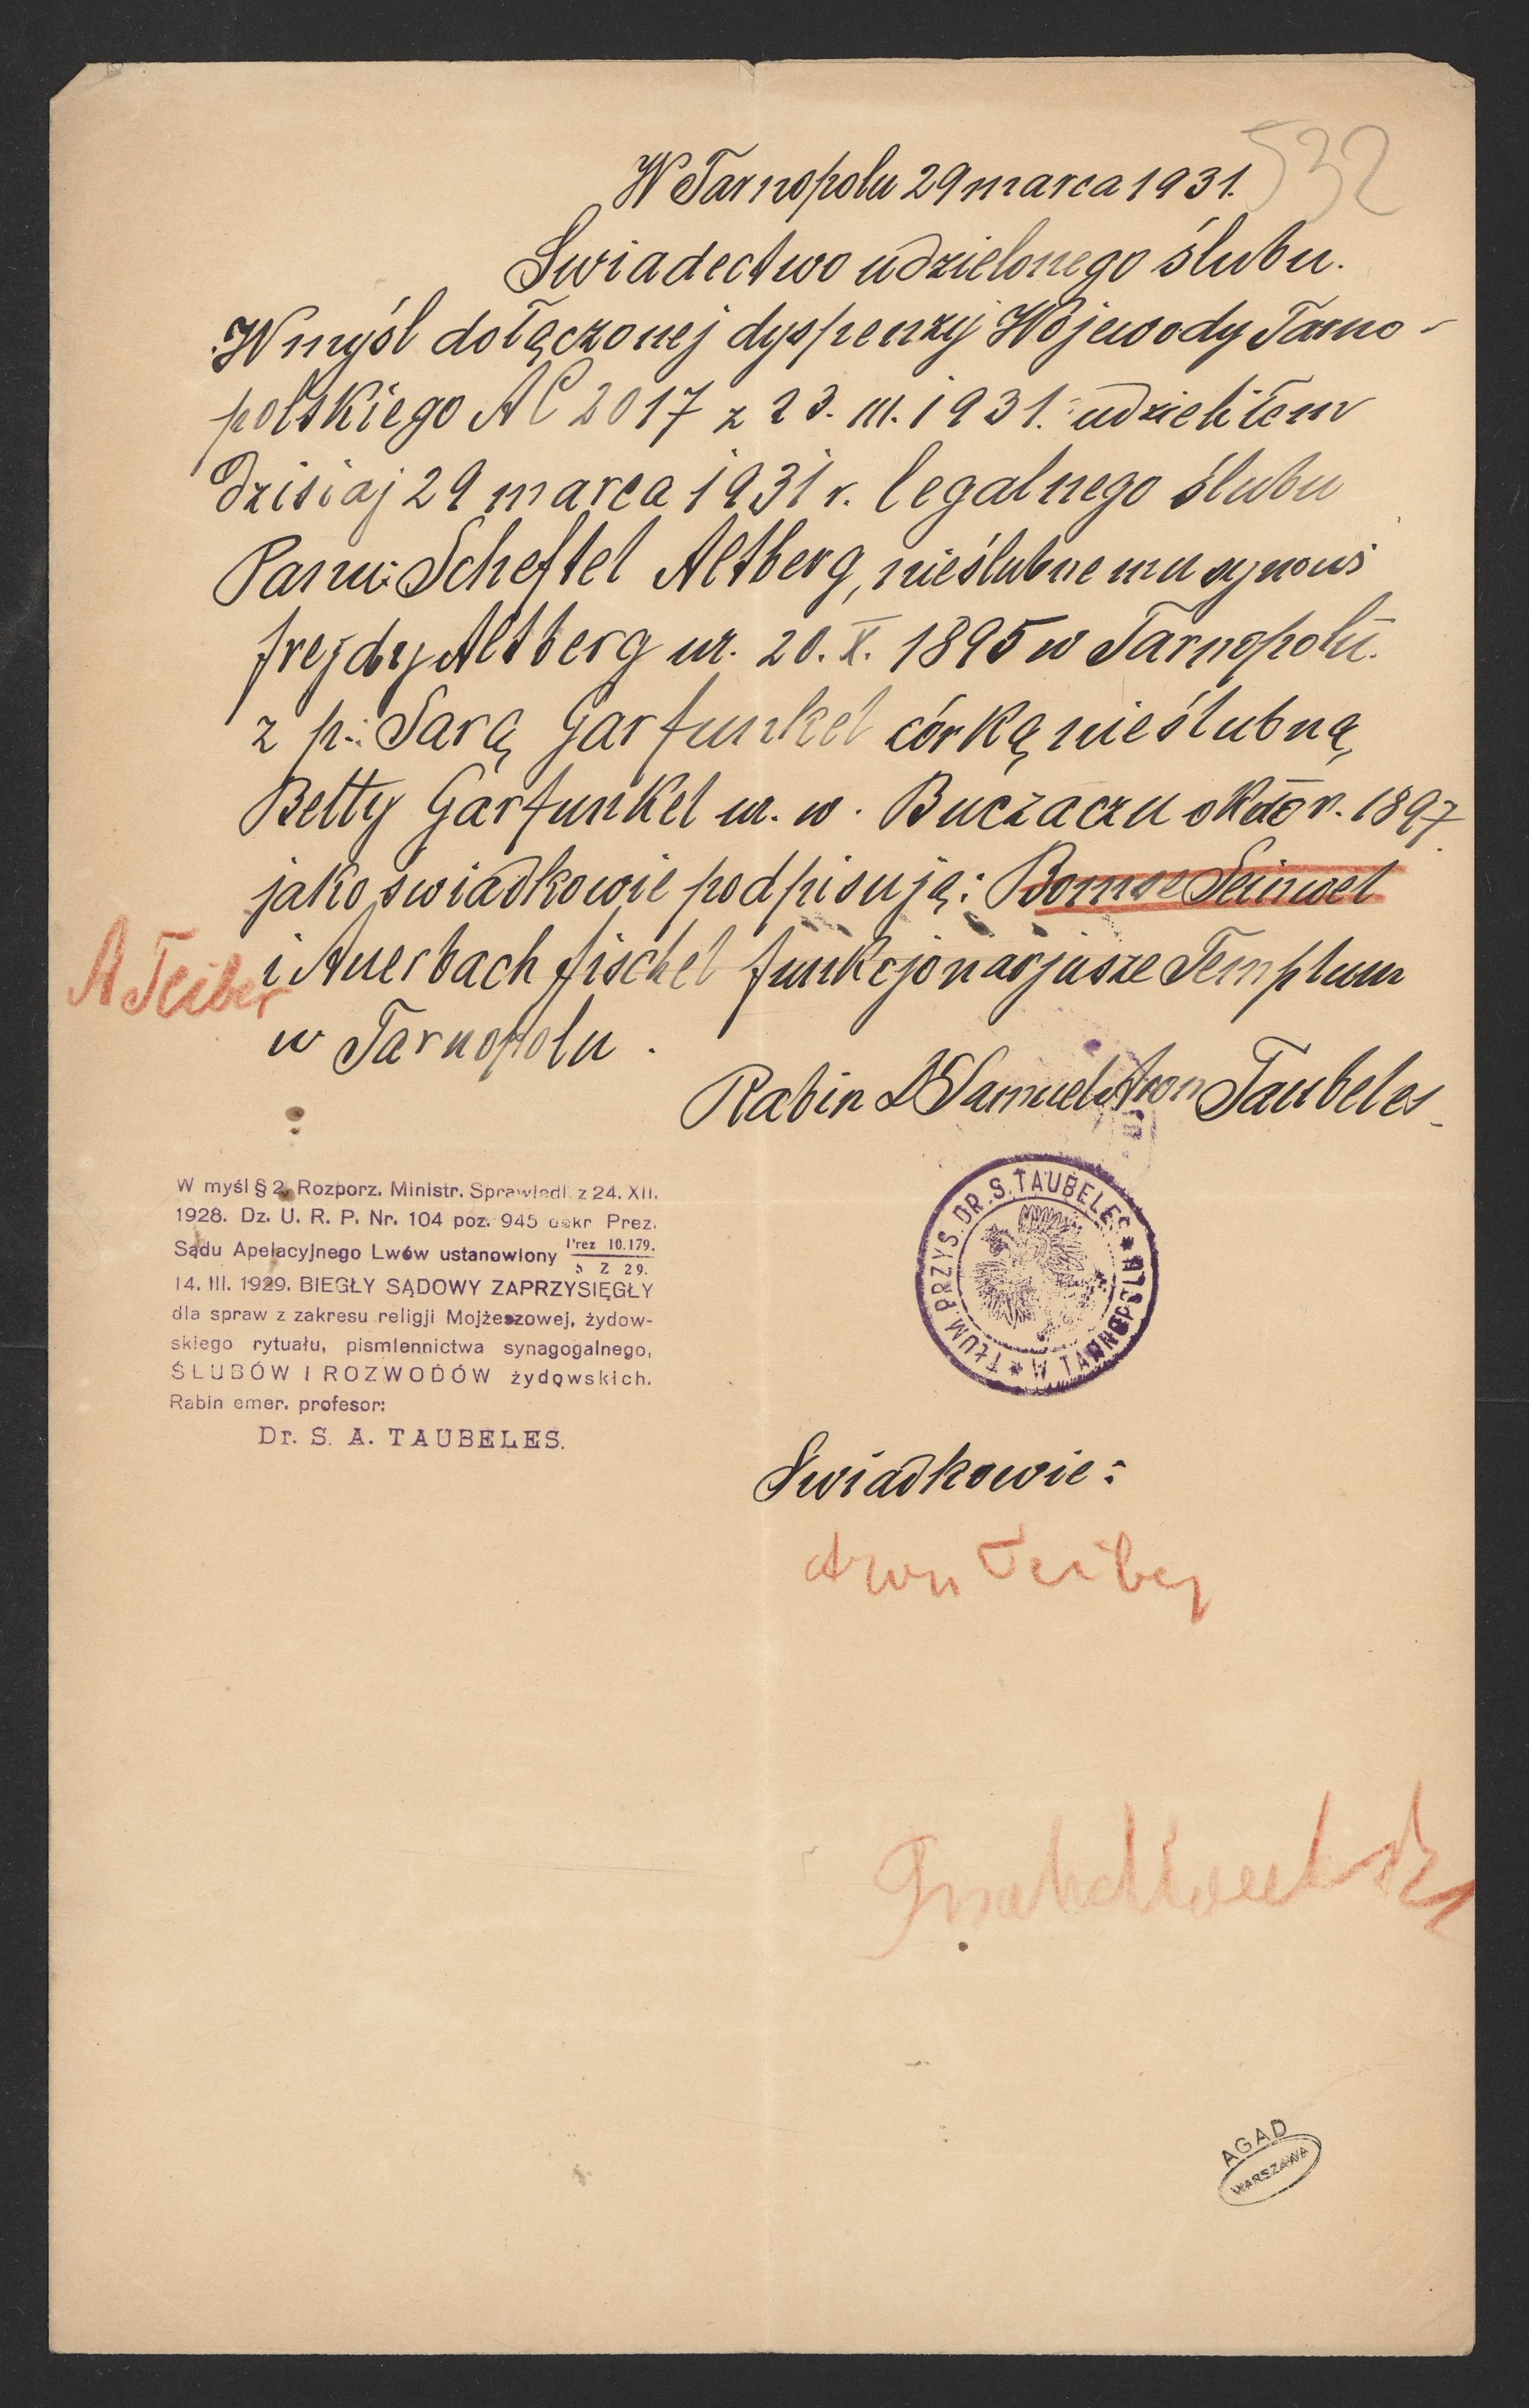 532
W Tarnopolu 29 marca 1931.
Swiadectwo udzielonego ślubu.
W myśl dołączonej dyspenzyj Wojewody Tarno-
polskiego AC 2017 z 23. III. 1931. udzieliłem
dzisiaj 29 marca 1931 r. legalnego ślubu
Panu: Scheftel Altberg, nieślubnemu synowi
frejdy Altberg ur. 20. X. 1895 w Tarnopolu.
z p. Sarą Garfunkel córką nieślubną
Betty Garfunkel ur. w. Buczaczu około r. 1897.
jako świadkowie podpisują: Bomse Seinwel
A Teiber
i Auerbach fischel funkcjonarjusze Templum
w Tarnopolu.
Rabin Dr Samuel Aron Taubeles
W myśl § 2, Rozporz. Ministr. Sprawiedl. z 24. XII.
1928. Dz. U. R. P. Nr. 104 poz. 945 dekr Prez.
Sądu Apelacyjnego Lwów ustanowiony Prez 10.179. 5 Z 29.
14. III. 1929. BIEGŁY SĄDOWY ZAPRZYSIĘGŁY
dla spraw z zakresu religji Mojżeszowej, żydow-
skiego rytuału, pismiennictwa synagogalnego,
ŚLUBÓW I ROZWODÓW żydowskich.
Rabin emer. profesor:
Dr. S. A. TAUBELES.
TŁUM. PRZYS. DR. S. TAUBELES * W TARNOPOLU *
Swiadkowie:
Aron Teiber
AGAD
WARSZAWA